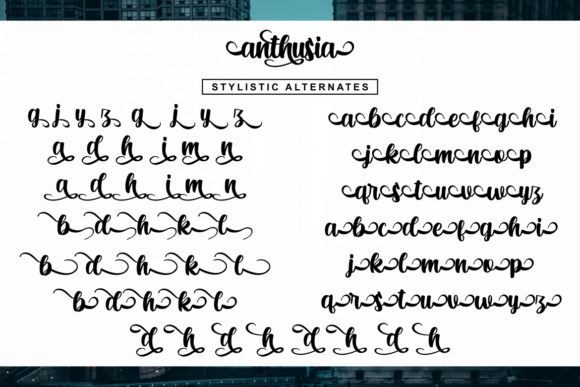 anthusia
STYLISTIC ALTERNATES
g j y z g j y z
a d h i m n
a d h i m n
b d h k l
b d h k l
b d h k l
a b c d e f g h i
j k l m n o p
q r s t u v w y z
a b c d e f g h i
j k l m n o p
q r s t u v w y z
d h d h d h d h